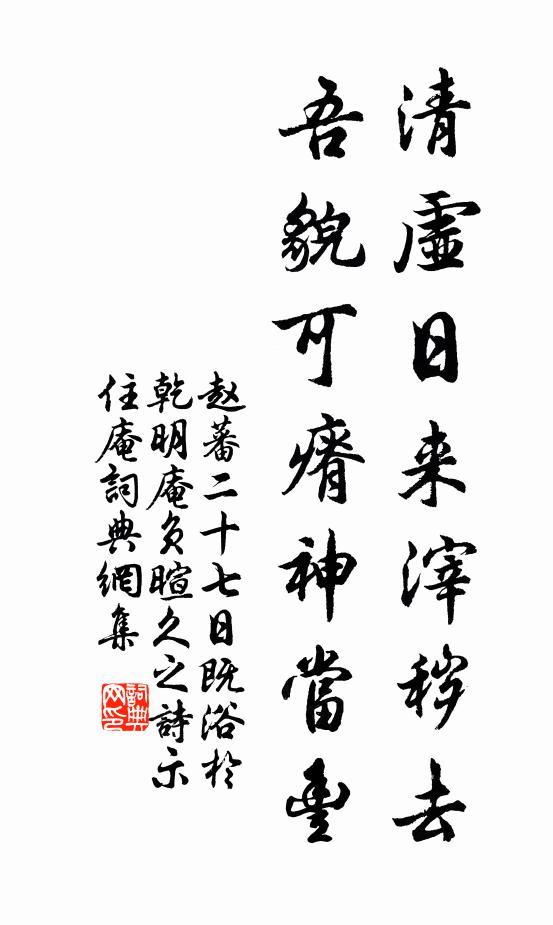 清虛日来滓穢去
吾貌可瘠神當豐
赵蕃二十七日既浴於
乾明庵負暄久之詩示
住庵詞典網集
詞典网印